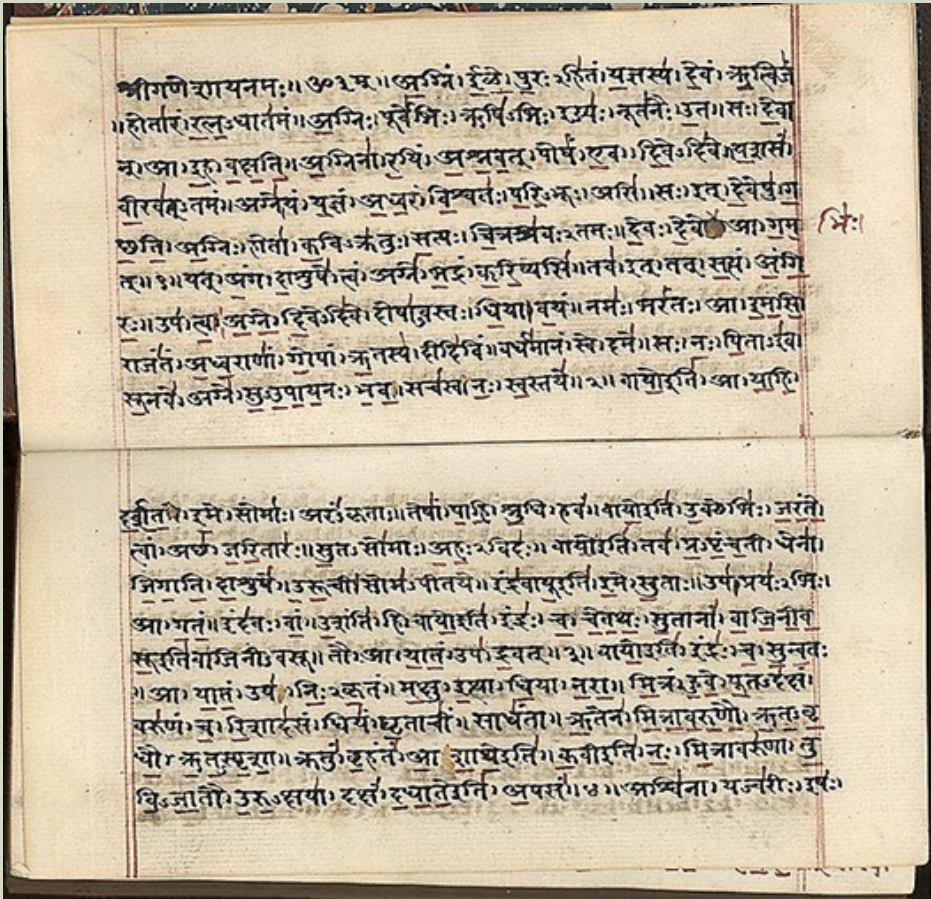 श्रीगणेशायनमः॥ॐ३म्॥अग्निं।ईळे।पुरःऽहितं।यज्ञस्य।देवं।ऋत्विजं
॥होतारं।रत्नऽधातमं॥अग्निः।पूर्वेभिः।ऋषिऽभिः।ईड्यः।नूतनैः।उत॥सः।देवा
न्।आ।इह।वक्षति॥अग्निना।रयिं।अश्नवत्।पोषं।एव।दिवेऽदिवे॥यशसं
वीरवत्ऽतमं॥अग्नेयं।यज्ञं।अध्वरं।विश्वतः।परिऽभूः।असि॥सः।इत्।देवेषु।ग
च्छति।अग्निः।होता।कविऽक्रतुः।सत्यः।चित्रश्रवःऽतमः॥देवः।देवे आ।गम
भिः।
त्॥१॥यत्।अंग।दाशुषे।त्वं।अग्ने।भद्रं।करिष्यसि॥तव।इत्।तत्।सत्यं।अंगि
रः॥उप।त्वा।अग्ने।दिवेऽदिवे।दोषाऽवस्तः।धिया।वयं॥नमः।भरंतः।आ।इमसि
राजंतं।अध्वराणां।गोपां।ऋतस्य।दीदिविं॥वर्धमानं।स्वे।दमे॥सः।नः।पिताऽइव
सूनवे।अग्ने।सुऽउपायनः।भव।सचस्व।नः।स्वस्तये॥२॥वायोइति।आ।याहि।
दर्शत।इमे।सोमाः।अरंऽकृताः॥तेषां।पाहि।श्रुधि।हवं॥वायोइति।उक्थेभिः।जरंते।
त्वां।अछ।जरितारः॥सुतऽसोमाः।अहःऽविदः॥वायोइति।तव।प्रऽपृंचती।धेना।
जिगाति।दाशुषे॥उरूची।सोमऽपीतये॥इंद्रवायूइति।इमे।सुताः॥उप।प्रयःऽभिः।
आ।गतं॥इंदवः।वां।उशंति।हि।वायोइति।इंद्रः।च।चेतथः।सुतानां।वाजिनीव
सूइतिवाजिनीऽवसू॥तौ।आ।यातं।उप।द्रवत्॥३॥वायोइति।इंद्रः।च।सुन्वतः
॥आ।यातं।उप।निःऽकृतं॥मक्षु।इत्था।धिया।नरा॥मित्रं।हुवे।पूतऽदक्षं
वरुणं।च।रिशादसं।धियं।घृताचीं॥साधंता॥ऋतेन।मित्रावरुणौ।ऋतऽवृ
धौ।ऋतऽस्पृशा॥क्रतुं।बृहंतं।आशाथेइति॥कवीइति।नः।मित्रावरुणा।तु
विऽजातौ।उरुऽक्षया।दक्षं।दधातेइति।अपसं॥४॥अश्विना।यज्वरीः।इषः।